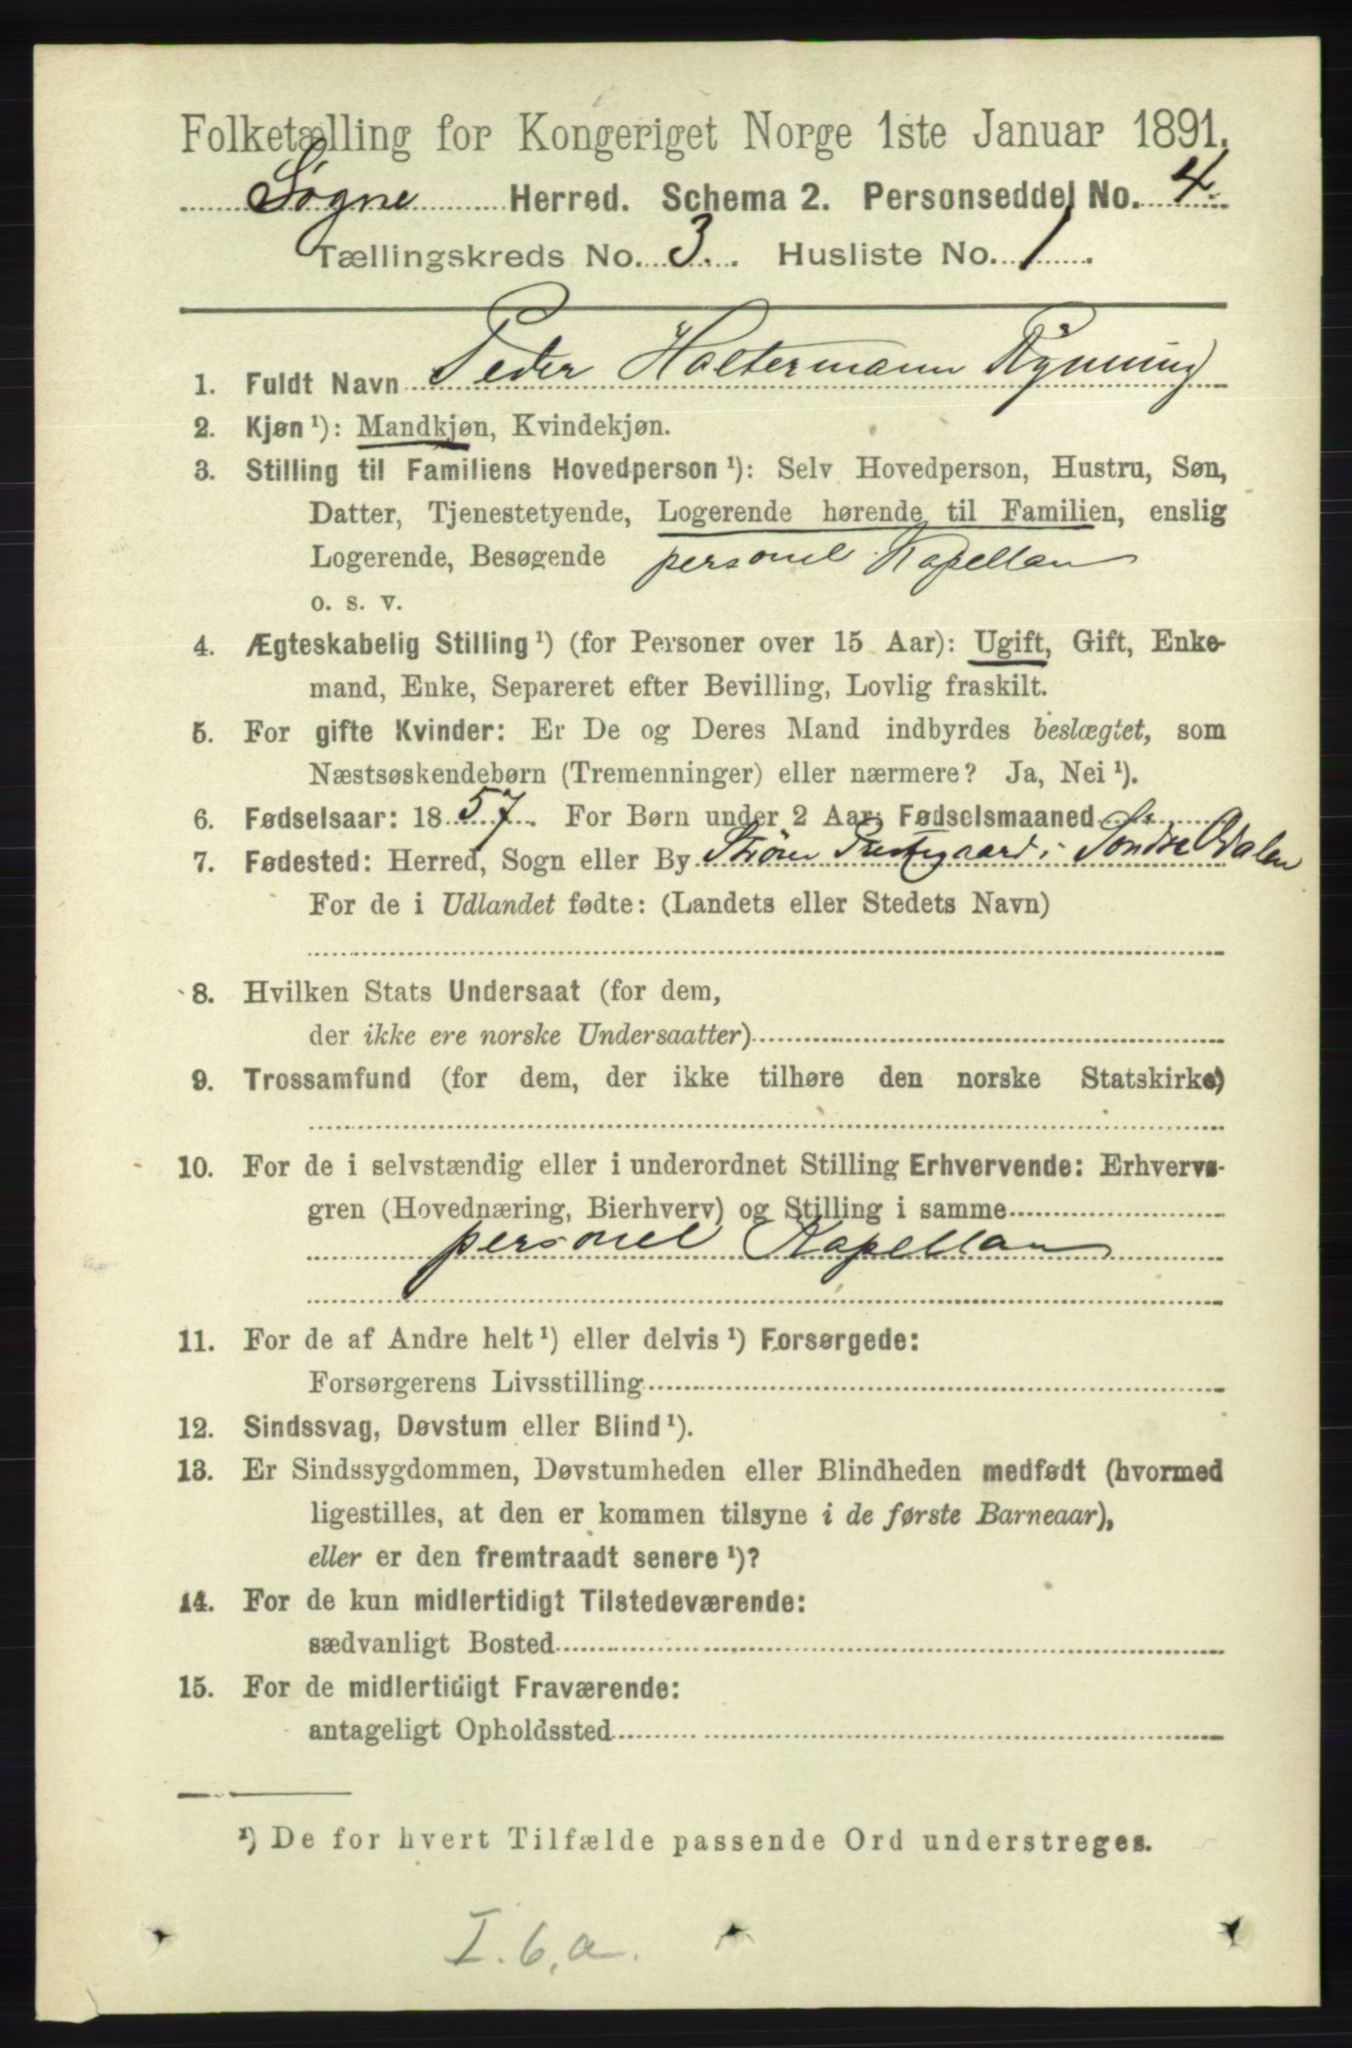 Folketælling for Kongeriget Norge 1ste Januar 1891.
Søgne Herred. Schema 2. Personseddel No. 4.
Tællingskreds No. 3. Husliste No. 1
1. Fuldt Navn Peder Holtermann Rynning
2. Kjøn ¹): Mandkjøn, Kvindekjøn.
3. Stilling til Familiens Hovedperson ¹): Selv Hovedperson, Hustru, Søn,
Datter, Tjenestetyende, Logerende hørende til Familien, enslig
Logerende, Besøgende personel Kapellan
o. s. v.
4. Ægteskabelig Stilling ¹) (for Personer over 15 Aar): Ugift, Gift, Enke-
mand, Enke, Separeret efter Bevilling, Lovlig fraskilt.
5. For gifte Kvinder: Er De og Deres Mand indbyrdes beslægtet, som
Næstsøskendebørn (Tremenninger) eller nærmere? Ja, Nei ¹).
6. Fødselsaar: 1857. For Børn under 2 Aar: Fødselsmaaned
7. Fødested: Herred, Sogn eller By Strøm Prestegaard i Søndre Odalen
For de i Udlandet fødte: (Landets eller Stedets Navn)
8. Hvilken Stats Undersaat (for dem,
der ikke ere norske Undersaatter)
9. Trossamfund (for dem, der ikke tilhøre den norske Statskirke)
10. For de i selvstændig eller i underordnet Stilling Erhvervende: Erhvervs-
gren (Hovednæring, Bierhverv) og Stilling i samme
personel Kapellan
11. For de af Andre helt ¹) eller delvis ¹) Forsørgede:
Forsørgerens Livsstilling
12. Sindssvag, Døvstum eller Blind ¹).
13. Er Sindssygdommen, Døvstumheden eller Blindheden medfødt (hvormed
ligestilles, at den er kommen tilsyne i de første Barneaar),
eller er den fremtraadt senere ¹)?
14. For de kun midlertidigt Tilstedeværende:
sædvanligt Bosted
15. For de midlertidigt Fraværende:
antageligt Opholdssted
¹) De for hvert Tilfælde passende Ord understreges.
I. 6, a.